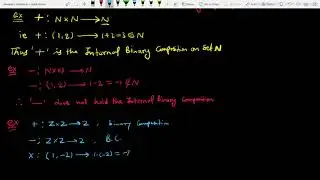 Ex +: N×N → N
ie +: (1,2) → 1+2=3 ∈ N
Thus '+' is the Internal Binary Composition on Set N
Ex −; N×N → N
−; (1,2) → 1-2 = -1 ∉ N
∴ '−' does not hold the Internal Binary Composition
Ex +: Z×Z → Z , Binary Composition
−; Z×Z → Z , B.C.
X: (1,-2) → 1·(-2) = -